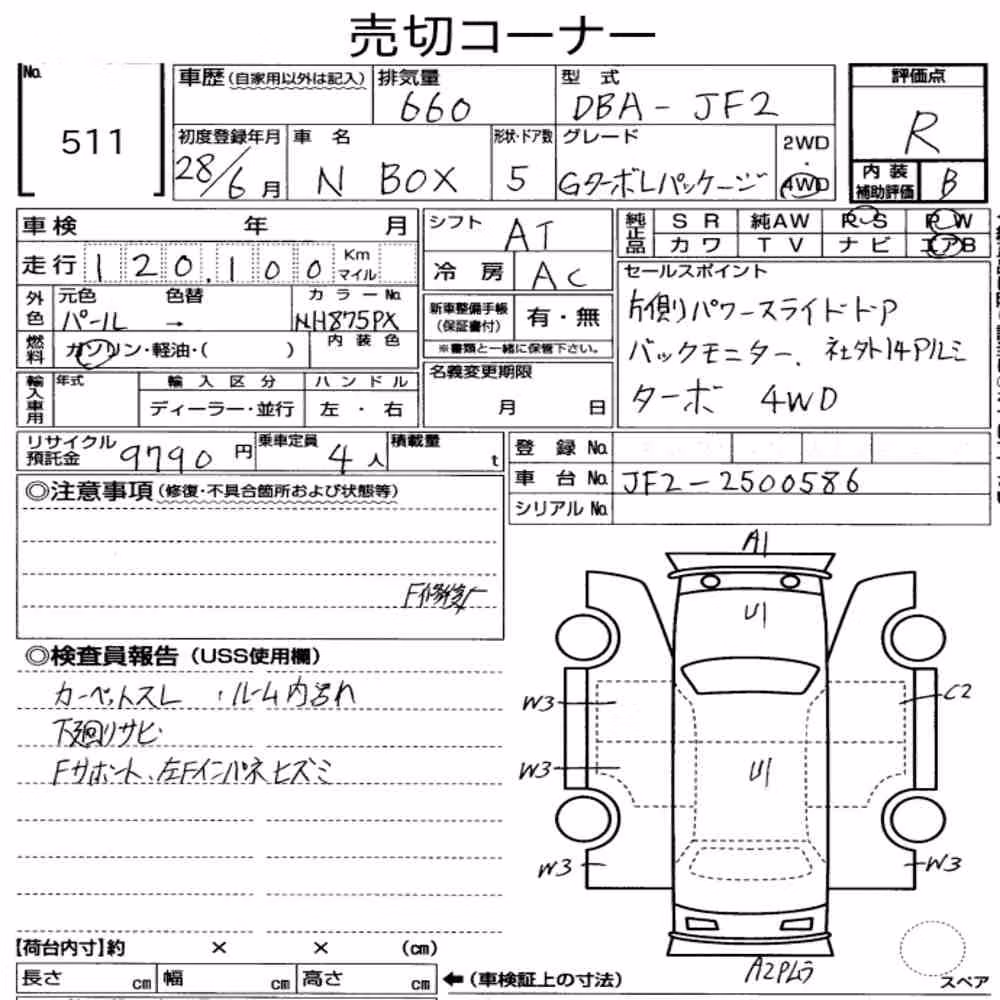 売切コーナー
No. 511
車歴(自家用以外は記入)
排気量 660
型式 DBA-JF2
評価点 R
初度登録年月 28/6月
車名 N BOX
形状・ドア数 5
グレード Gターボレパッケージ
2WD・4WD
内装補助評価 B
車検 年 月
シフト AT
純正品 SR 純AW PS PW
カワ TV ナビ エアB
走行 120,100 Km マイル
冷房 AC
セールスポイント
片側パワースライドドア
バックモニター、社外14アルミ
ターボ 4WD
外色 元色 パール → 色替
カラーNo. NH875PX
新車整備手帳(保証書付) 有・無
※書類と一緒に保管下さい。
燃料 ガソリン・軽油・( )
内装色
輸入車用 年式 輸入区分 ハンドル
ディーラー・並行 左・右
名義変更期限
月 日
リサイクル預託金 9790円
乗車定員 4人
積載量 t
登録No.
車台No. JF2-2500586
シリアルNo.
◎注意事項(修復・不具合箇所および状態等)
F修復
◎検査員報告(USS使用欄)
カーペットスレ、ルーム内汚れ
下廻りサビ
Fサポート、左Fインパネヒズミ
A1
U1
W3
C2
W3
U1
W3
W3
A2Pムラ
スペア
【荷台内寸】約 × × (cm)
長さ cm 幅 cm 高さ cm
←(車検証上の寸法)